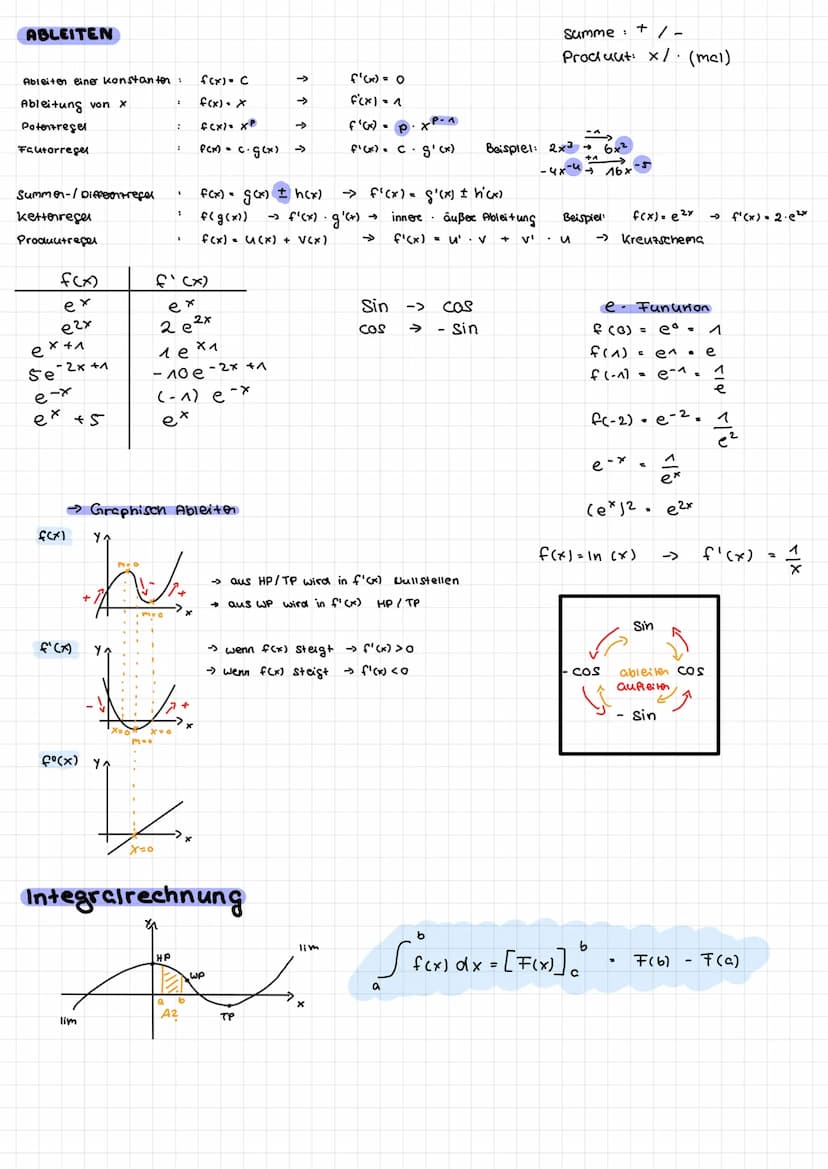 ABLEITEN
Summe : + / -
Produkt: x / · (mal)
Ableiten einer Konstanten : f(x) = c → f'(x) = 0
Ableitung von x : f(x) = x → f'(x) = 1
Potenzregel : f(x) = x^p → f'(x) = p · x^p-1
Faktorregel : f(x) = c · g(x) → f'(x) = c · g'(x) Beispiel: 2x^3 → 6x^2
-1
-4x^-4 → 16x^-5
+1
Summen-/Differenzregel : f(x) = g(x) ± h(x) → f'(x) = g'(x) ± h'(x)
Kettenregel : f(g(x)) → f'(x) · g'(x) → innere · äußere Ableitung Beispiel: f(x) = e^2x → f'(x) = 2 · e^2x
Produktregel : f(x) = u(x) + v(x) → f'(x) = u' · v + v' · u → Kreuzschema
f(x) f'(x)
e^x e^x
e^2x 2e^2x
e^x+1 1e^x1
5e^-2x+1 -10e^-2x+1
e^-x (-1) e^-x
e^x + 5 e^x
Sin -> cos
cos → - sin
e - Funktion
f(0) = e^0 = 1
f(1) = e^1 = e
f(-1) = e^-1 = 1/e
f(-2) = e^-2 = 1/e^2
e^-x = 1/e^x
(e^x)2 = e^2x
f(x) = ln (x) → f'(x) = 1/x
→ Graphisch Ableiten
f(x) y x
m=0
+ - +
m=0
→ aus HP/TP wird in f'(x) Nullstellen
→ aus WP wird in f'(x) HP / TP
f'(x) y x
- +
x=0 x=0
m=0
→ wenn f(x) steigt → f'(x) > 0
→ wenn f(x) steigt → f'(x) < 0
f°(x) y x
x=0
Sin
- cos ableiten cos
aufleiten
- sin
Integralrechnung
y
HP
WP
lim
x
a b
A?
TP
lim
∫ₐᵇ f(x) dx = [F(x)]ₐᵇ = F(b) - F(a)